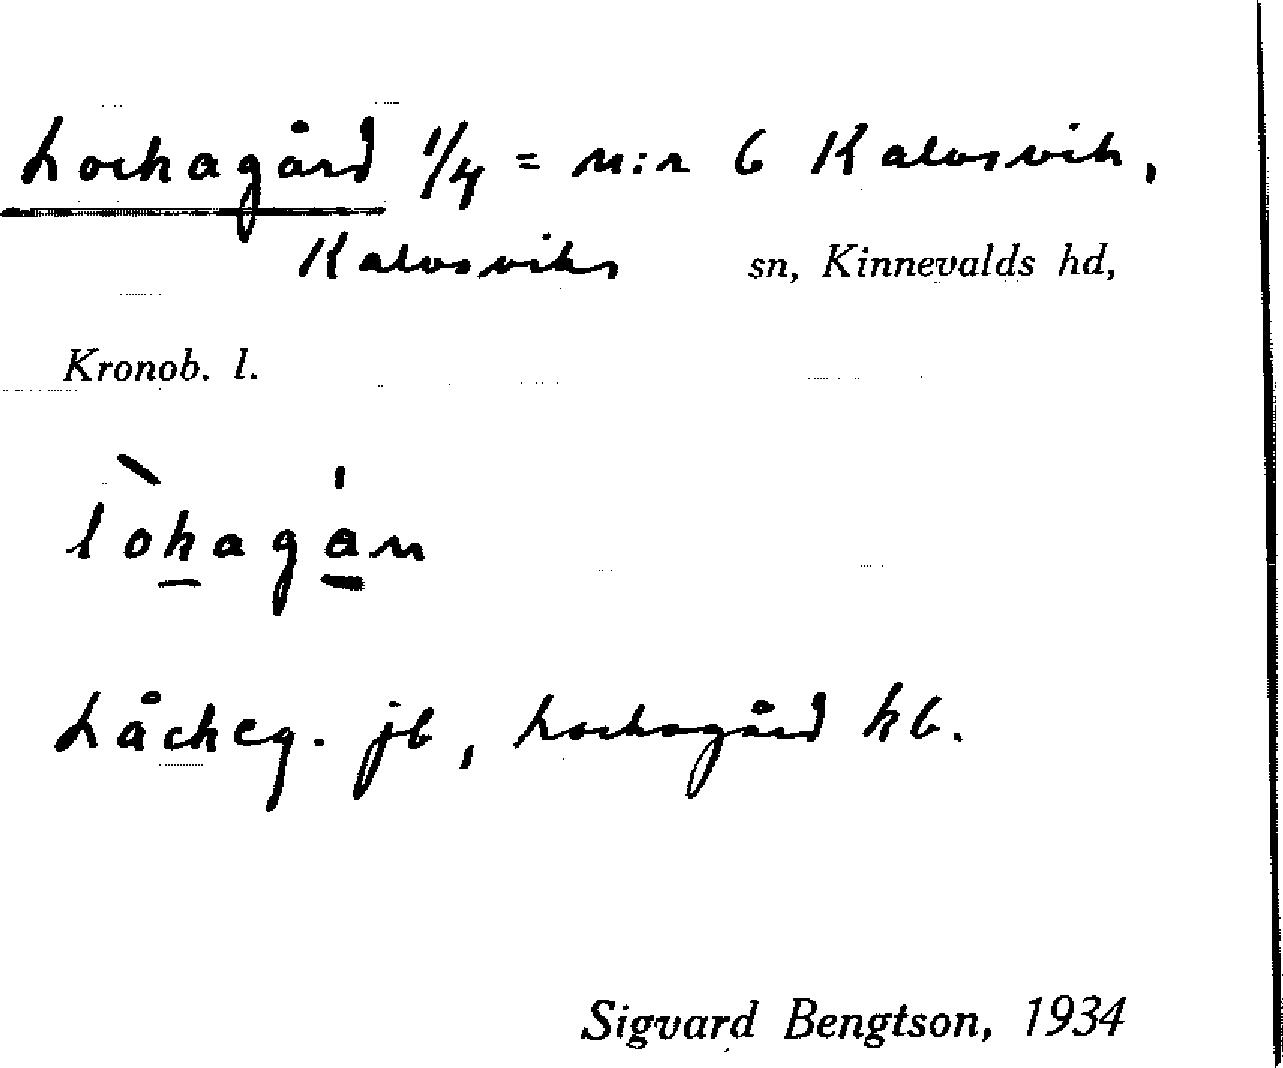 Lockagård 1/4 = n:r 6 Kalvsvik,
Kalvsviks sn, Kinnevalds hd,
Kronob. l.
lòkagán
Låckeg. jb, Lockagård kb.
Sigvard Bengtson, 1934